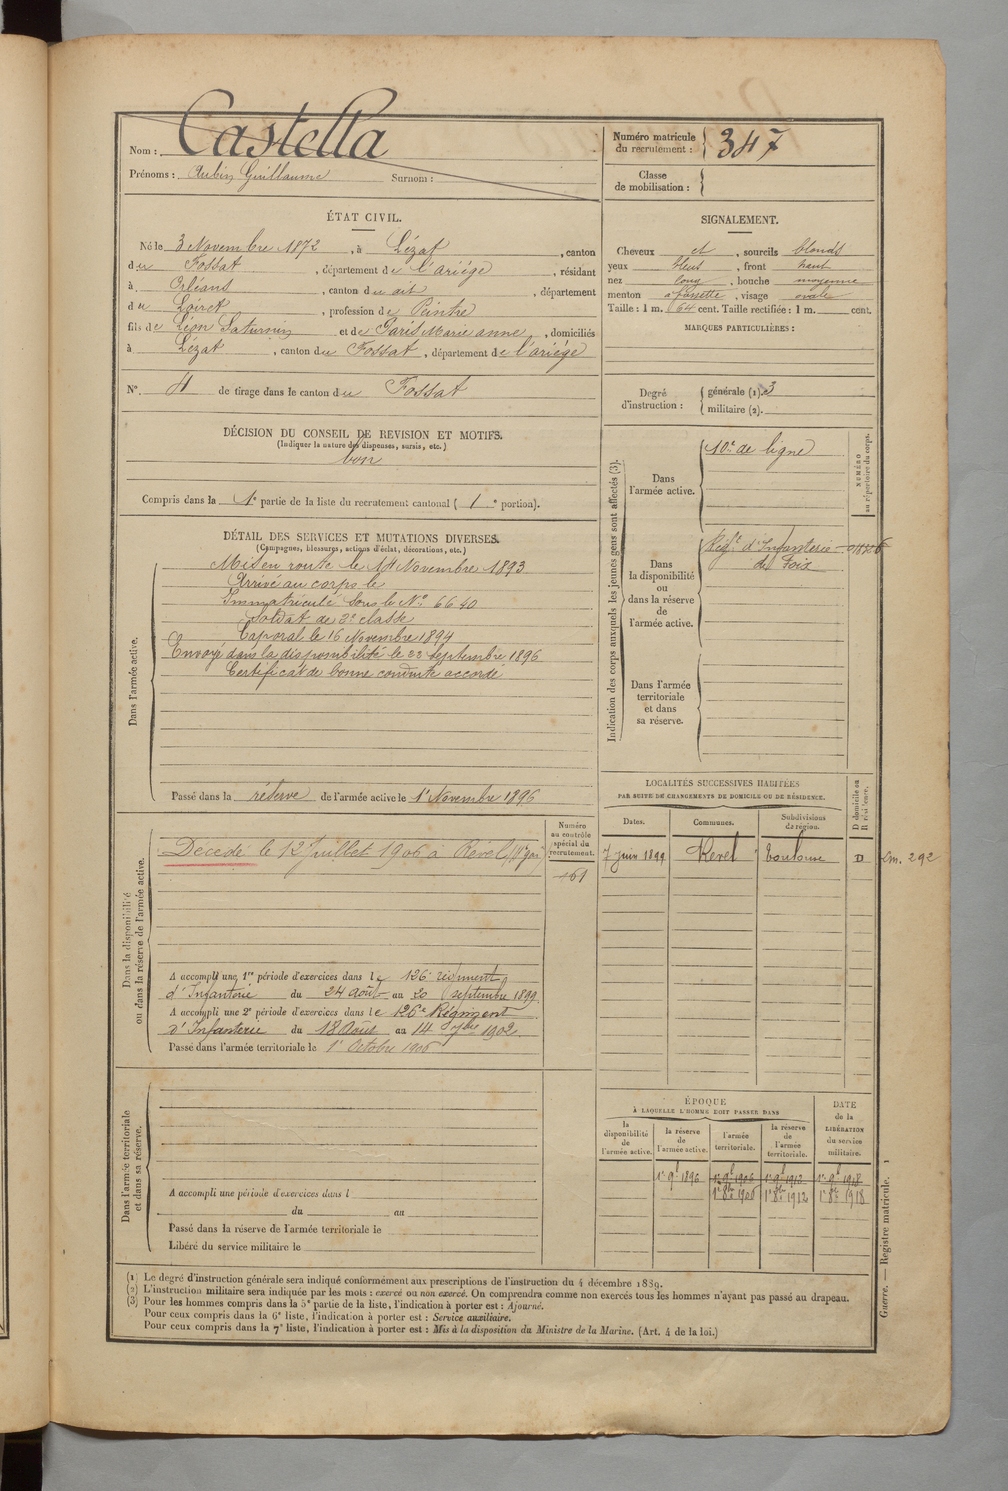 Nom : Castella
Prénoms : Aubin Guillaume Surnom :
Numéro matricule du recrutement : 347
Classe de mobilisation :
ÉTAT CIVIL.
Né le 3 Novembre 1872, à Lézat, canton
du Fossat, département de l'ariège, résidant
à Orléans, canton du dit, département
du Loiret, profession de Peintre
fils de Léon Saturnin et de Paris Marie anne, domiciliés
à Lézat, canton du Fossat, département de l'ariège
N° 4 de tirage dans le canton du Fossat
DÉCISION DU CONSEIL DE REVISION ET MOTIFS.
(Indiquer la nature des dispenses, sursis, etc.)
bon
Compris dans la 1e partie de la liste du recrutement cantonal ( 1e portion).
SIGNALEMENT.
Cheveux et, sourcils blonds
yeux bleus, front haut
nez long, bouche moyenne
menton à fossette, visage ovale
Taille : 1 m. 64 cent. Taille rectifiée : 1 m. cent.
MARQUES PARTICULIÈRES :
Degré d'instruction : générale (1). 3
militaire (2).
DÉTAIL DES SERVICES ET MUTATIONS DIVERSES.
(Campagnes, blessures, actions d'éclat, décorations, etc.)
Dans l'armée active.
Mis en route le 14 Novembre 1893
Arrivé au corps le
Immatriculé sous le N° 6640
Soldat de 2e classe
Caporal le 16 Novembre 1894
Envoyé dans la disponibilité le 23 Septembre 1896
Certificat de bonne conduite accordé
Passé dans la réserve de l'armée active le 1r Novembre 1896
Indication des corps auxquels les jeunes gens sont affectés (3).
NUMÉRO au répertoire du corps.
Dans l'armée active.
10e de ligne
Dans la disponibilité ou dans la réserve de l'armée active.
Régt d'Infanterie
de Foix
Dans l'armée territoriale et dans sa réserve.
Dans la disponibilité ou dans la réserve de l'armée active.
Numéro au contrôle spécial du recrutement.
Décédé le 12 Juillet 1906 à Revel
161
A accompli une 1re période d'exercices dans le 126e régiment
d'Infanterie du 24 Août au 20 septembre 1899
A accompli une 2e période d'exercices dans le 126e Régiment
d'Infanterie du 18 Août au 14 7bre 1902
Passé dans l'armée territoriale le 1r Octobre 1906
LOCALITÉS SUCCESSIVES HABITÉES
PAR SUITE DE CHANGEMENTS DE DOMICILE OU DE RÉSIDENCE.
Dates. Communes. Subdivisions de région. D domicile ou R résidence.
7 juin 1899 Revel Toulouse D
292
Dans l'armée territoriale et dans sa réserve.
A accompli une période d'exercices dans l
du au
Passé dans la réserve de l'armée territoriale le
Libéré du service militaire le
ÉPOQUE
À LAQUELLE L'HOMME DOIT PASSER DANS
DATE de la LIBÉRATION du service militaire.
la disponibilité de l'armée active. la réserve de l'armée active. l'armée territoriale. la réserve de l'armée territoriale.
1r 9bre 1896 1r 9bre 1906 1r 9bre 1912 1r 9bre 1918
1r 8bre 1906 1r 8bre 1912 1r 8bre 1918
Guerre. — Registre matricule. 1
(1) Le degré d'instruction générale sera indiqué conformément aux prescriptions de l'instruction du 4 décembre 1889.
(2) L'instruction militaire sera indiquée par les mots : exercé ou non exercé. On comprendra comme non exercés tous les hommes n'ayant pas passé au drapeau.
(3) Pour les hommes compris dans la 5e partie de la liste, l'indication à porter est : Ajourné.
Pour ceux compris dans la 6e liste, l'indication à porter est : Service auxiliaire.
Pour ceux compris dans la 7e liste, l'indication à porter est : Mis à la disposition du Ministre de la Marine. (Art. 4 de la loi.)